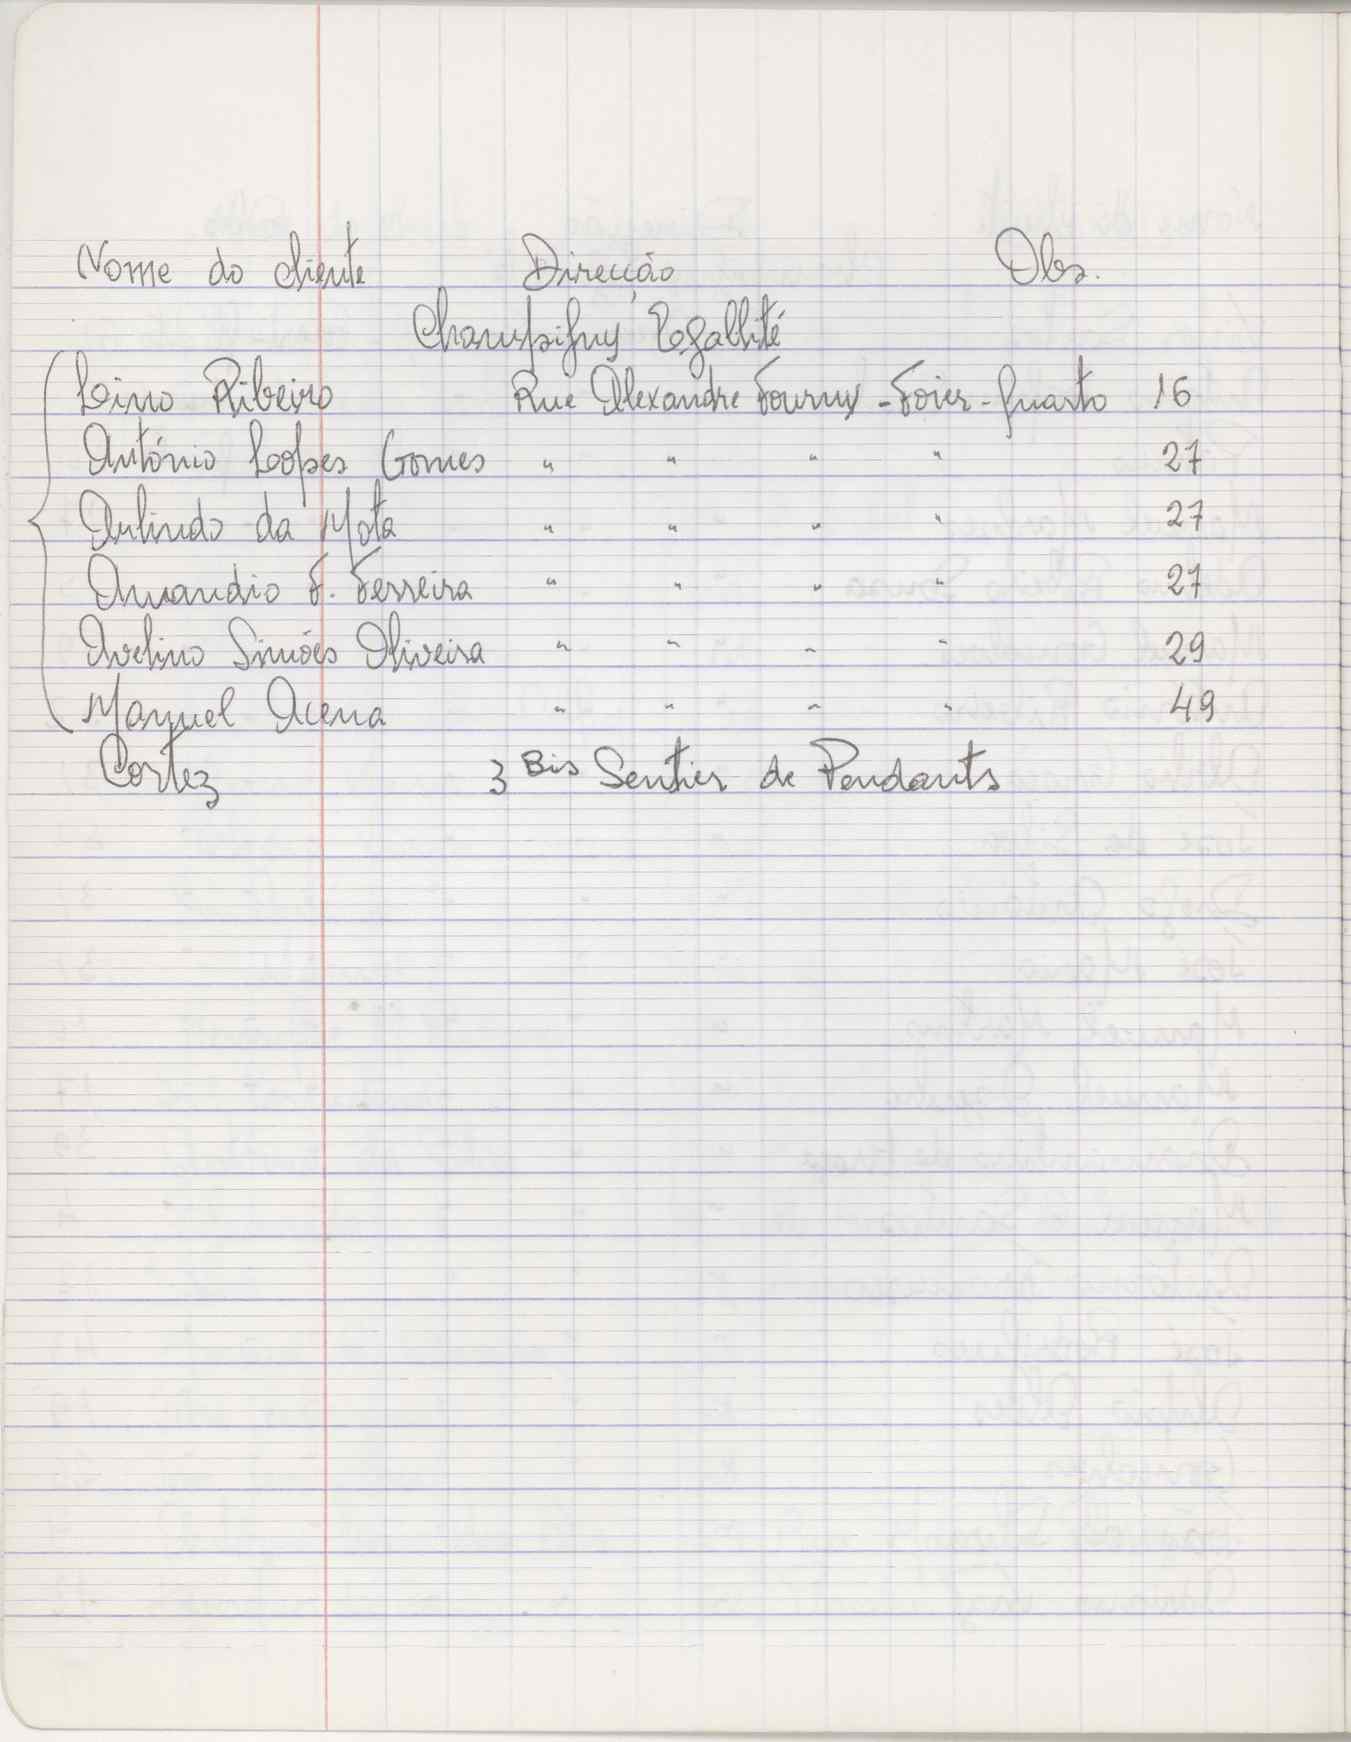 Nome do cliente Direcção Obs.
Champigny Egallité
Lino Ribeiro Rue Alexandre Fourny - Foier - Quarto 16
António Loopes Gomes " " " " 27
Arlindo da Mota " " " " 27
Amandio F. Ferreira " " " " 27
Avelino Simões Oliveira " " " " 29
Manuel Acena " " " " 49
Cortez 3 Bis Sentier de Pendants